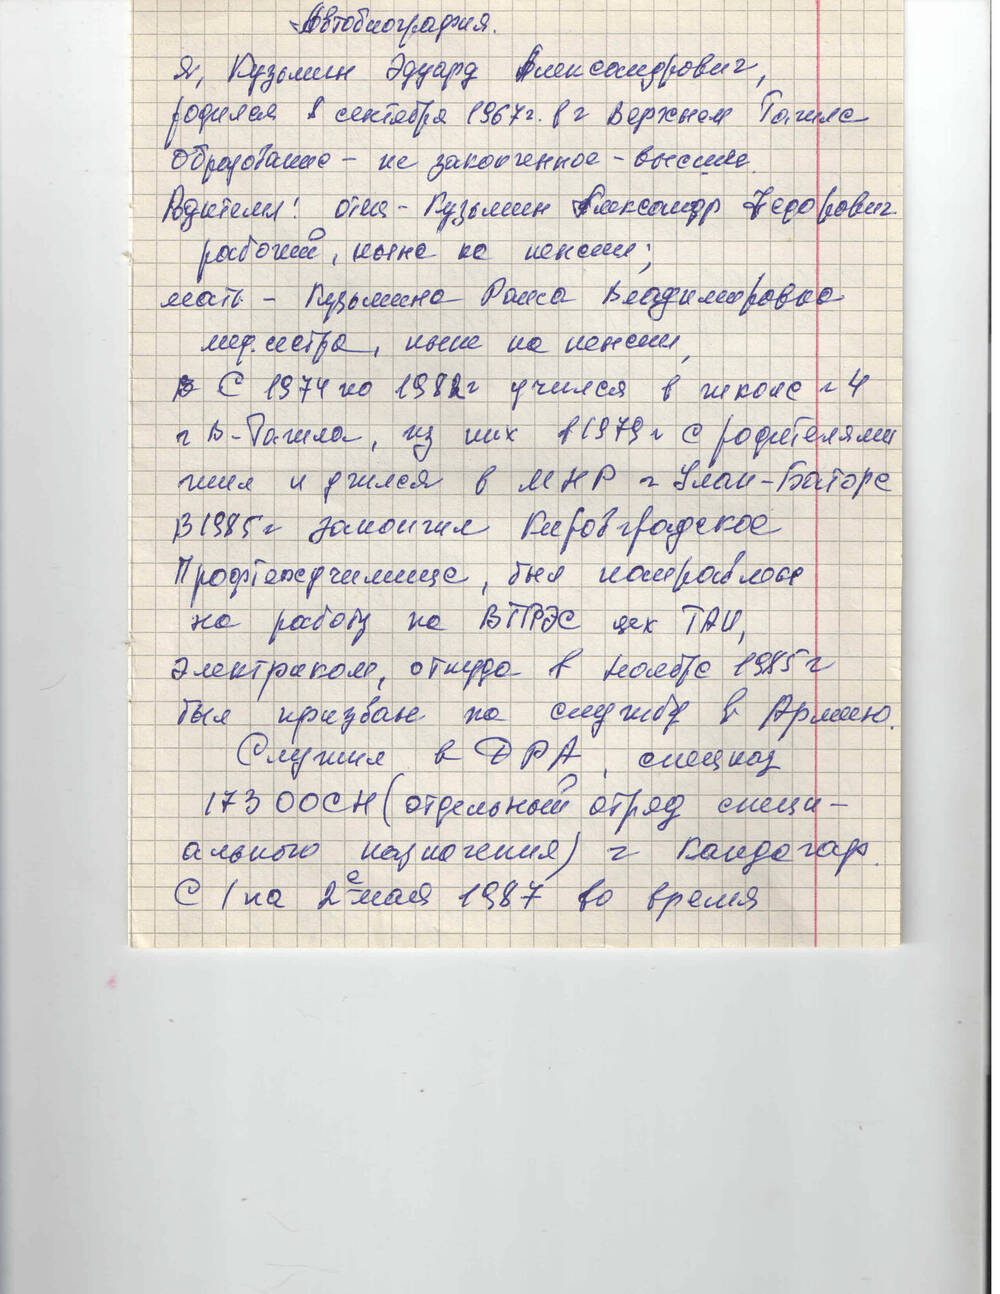 Автобиография.
Я, Кузьмин Эдуард Александрович,
родился в сентябре 1967г. в г Верхнем Тагиле
Образование – не законченное – высшее.
Родители: отец – Кузьмин Александр Федорович
рабочий, ныне на пенсии;
мать – Кузьмина Раиса Владимировна
мед.сестра, ныне на пенсии,
С 1974 по 1982г учился в школе № 4
г В-Тагила, из них в 1979г с родителями
жил и учился в МНР г Улан-Баторе
В 1985г закончил Кировградское
Профтехучилище, был направлен
на работу на ВТГРЭС цех ТАИ,
электриком, откуда в ноябре 1985г
был призван на службу в Армию.
Служил в ДРА, спецназ
173 ООСН (отдельный отряд специ-
ального назначения) г Кандагар.
С 1 на 2е мая 1987 во время